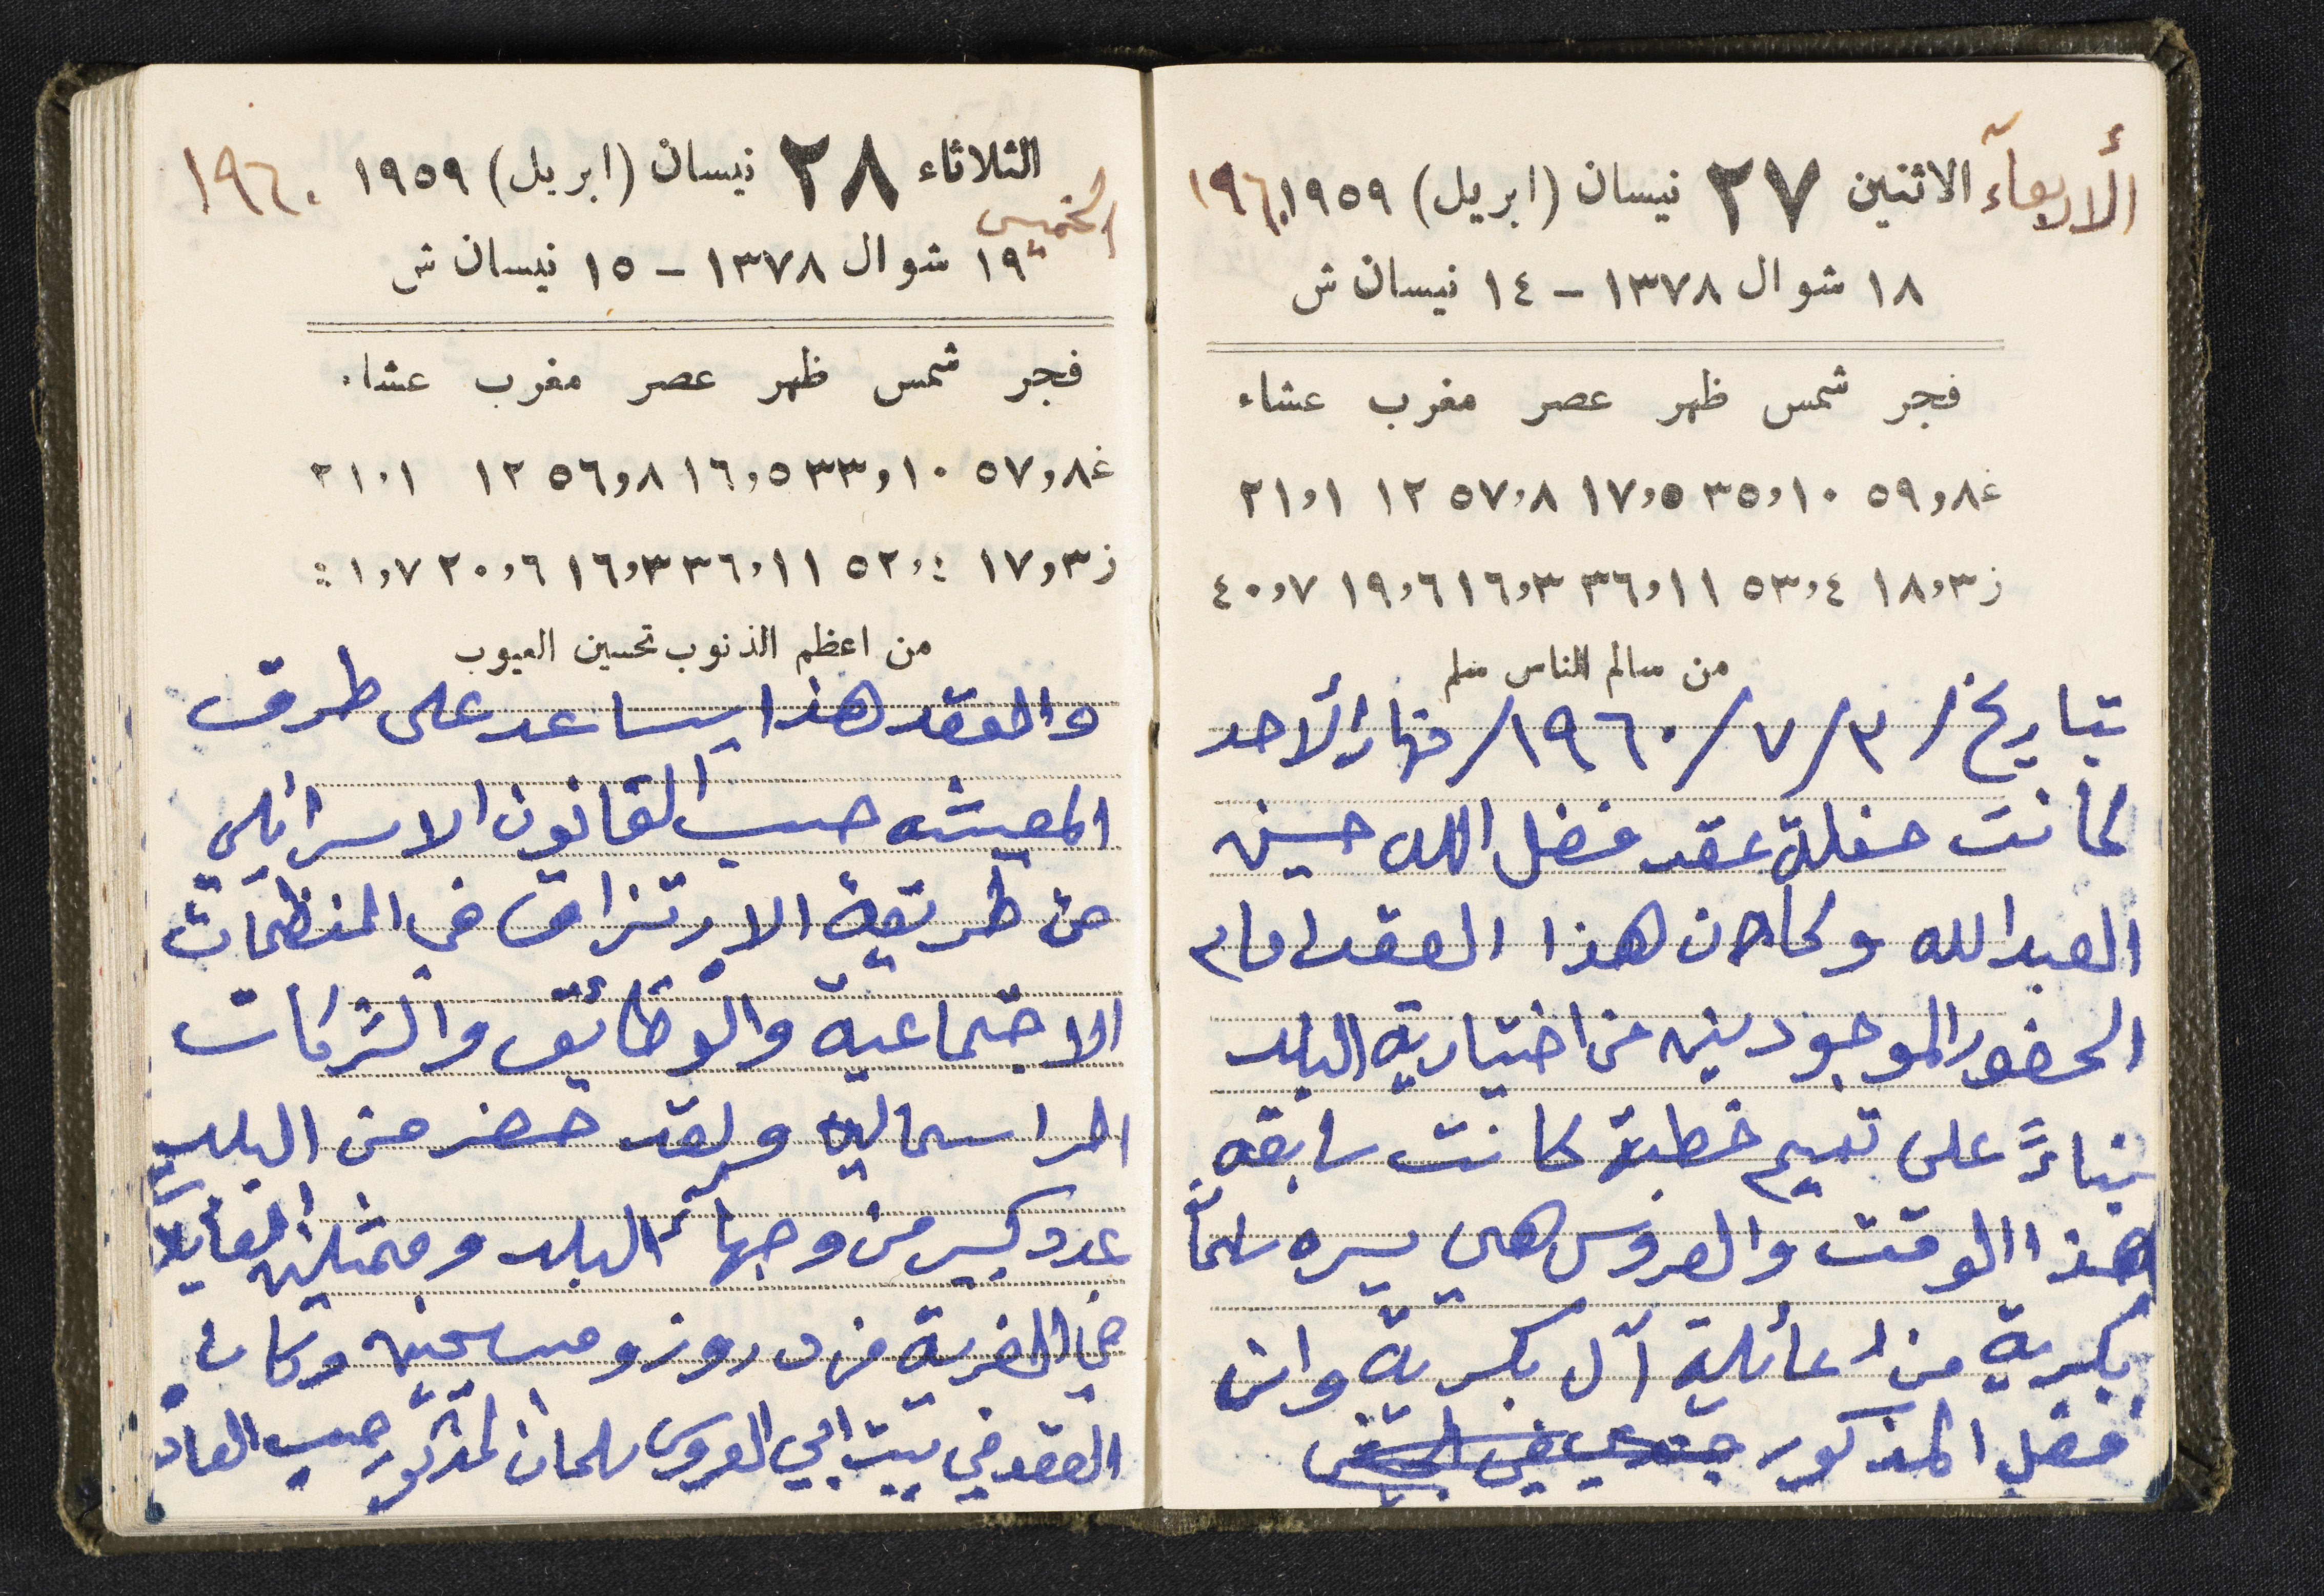 الأربعآء الاثنين ٢٧ نيسان (ابريل) ١٩٥٩ ١٩٦٠
١٨ شوال ١٣٧٨ – ١٤ نيسان ش
فجر شمس ظهر عصر مغرب عشاء
غ ٨٫٥٩ ١٠٫٣٥ ٥٫١٧ ٨٫٥٧ ١٢ ١٫٢١
ز ٣٫١٨ ٤٫٥٣ ١١٫٣٦ ٣٫١٦ ٦٫١٩ ٧٫٤٠
من سالم الناس سلم
بتاريخ ٣/٧/١٩٦٠/ نهار الأحد
كانت حفلة عقد فضل الله حسين
العبدالله وكان هذا العقد امام
الحضور الموجودين من اختيارية البلد
بناءً على تعميم خطبة كانت سابقه
هذا الوقت والعروس هي يسره سلمان
بكرية من عائلة آل بكرية وان
فضل المذكور جندي في الجيش
الثلاثاء ٢٨ نيسان (ابريل) ١٩٥٩ ١٩٦٠
الخميس
١٩ شوال ١٣٧٨ – ١٥ نيسان ش
فجر شمس ظهر عصر مغرب عشاء
غ ٨٫٥٧ ١٠٫٣٣ ٥٫١٦ ٨٫٥٦ ١٢ ١٫٢١
ز ٣٫١٧ ٤٫٥٢ ١١٫٣٦ ٣٫١٦ ٦٫٢٠ ٧٫١
من اعظم الذنوب تحسين العيوب
والعقد هذا يساعد على طرق
المعيشه حسب القانون الاسرائيلي
من طريقة الارتزاق في المنظمات
الاجتماعية والوظائف والشركات
الراسماليه ولقد حضر من البلد
عدد كبير من وجهاء البلد وممثلين العايلات
في القرية من دروز ومسيحيين وكان
العقد في بيت ابي العروس سلمان المذكور حسب العاد